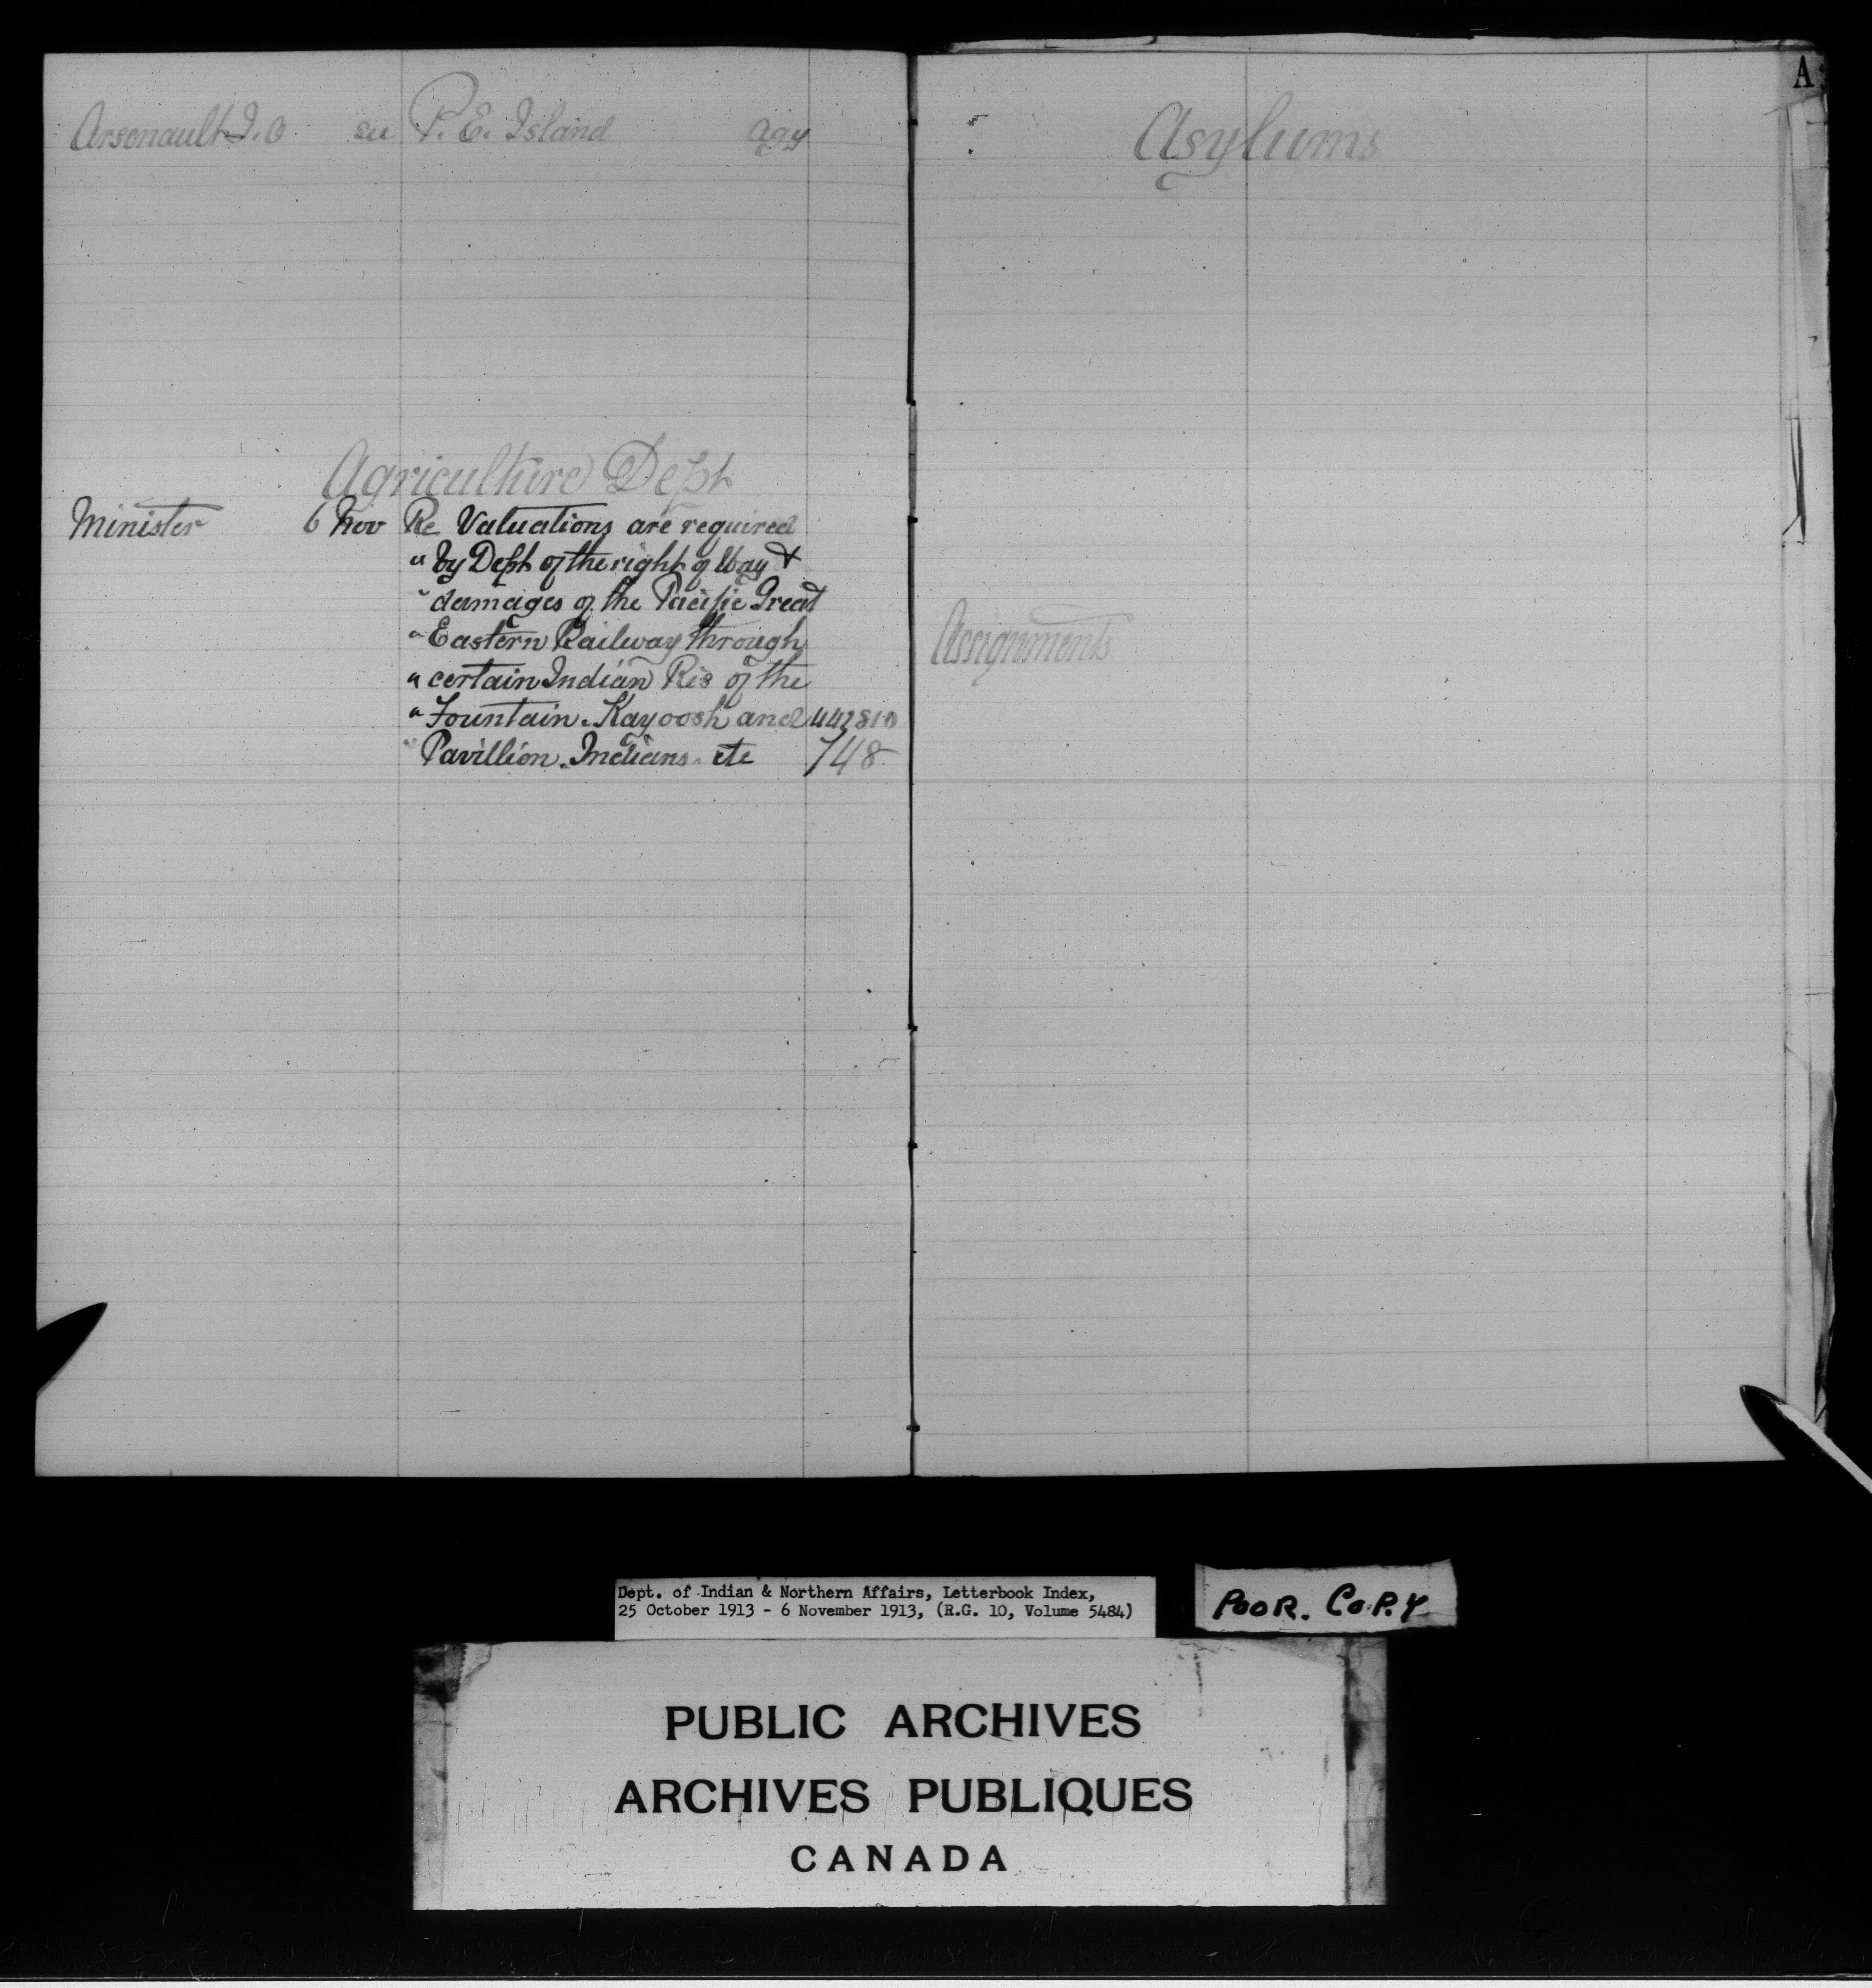 Arsenault J. O see P. E. Island agy
Agriculture Dept
Minister 6 Nov Re Valuations are required
" by Dept of the right of Way &
" damages of the Pacific Great
" Eastern Railway through
" certain Indian Res of the
" Fountain. Kayoosh and 442810
" Pavillion. Indians. etc 748
A
Asylums
Assignments
Dept. of Indian & Northern Affairs, Letterbook Index,
25 October 1913 - 6 November 1913, (R.G. 10, Volume 5484)
POOR. COPY
PUBLIC ARCHIVES
ARCHIVES PUBLIQUES
CANADA